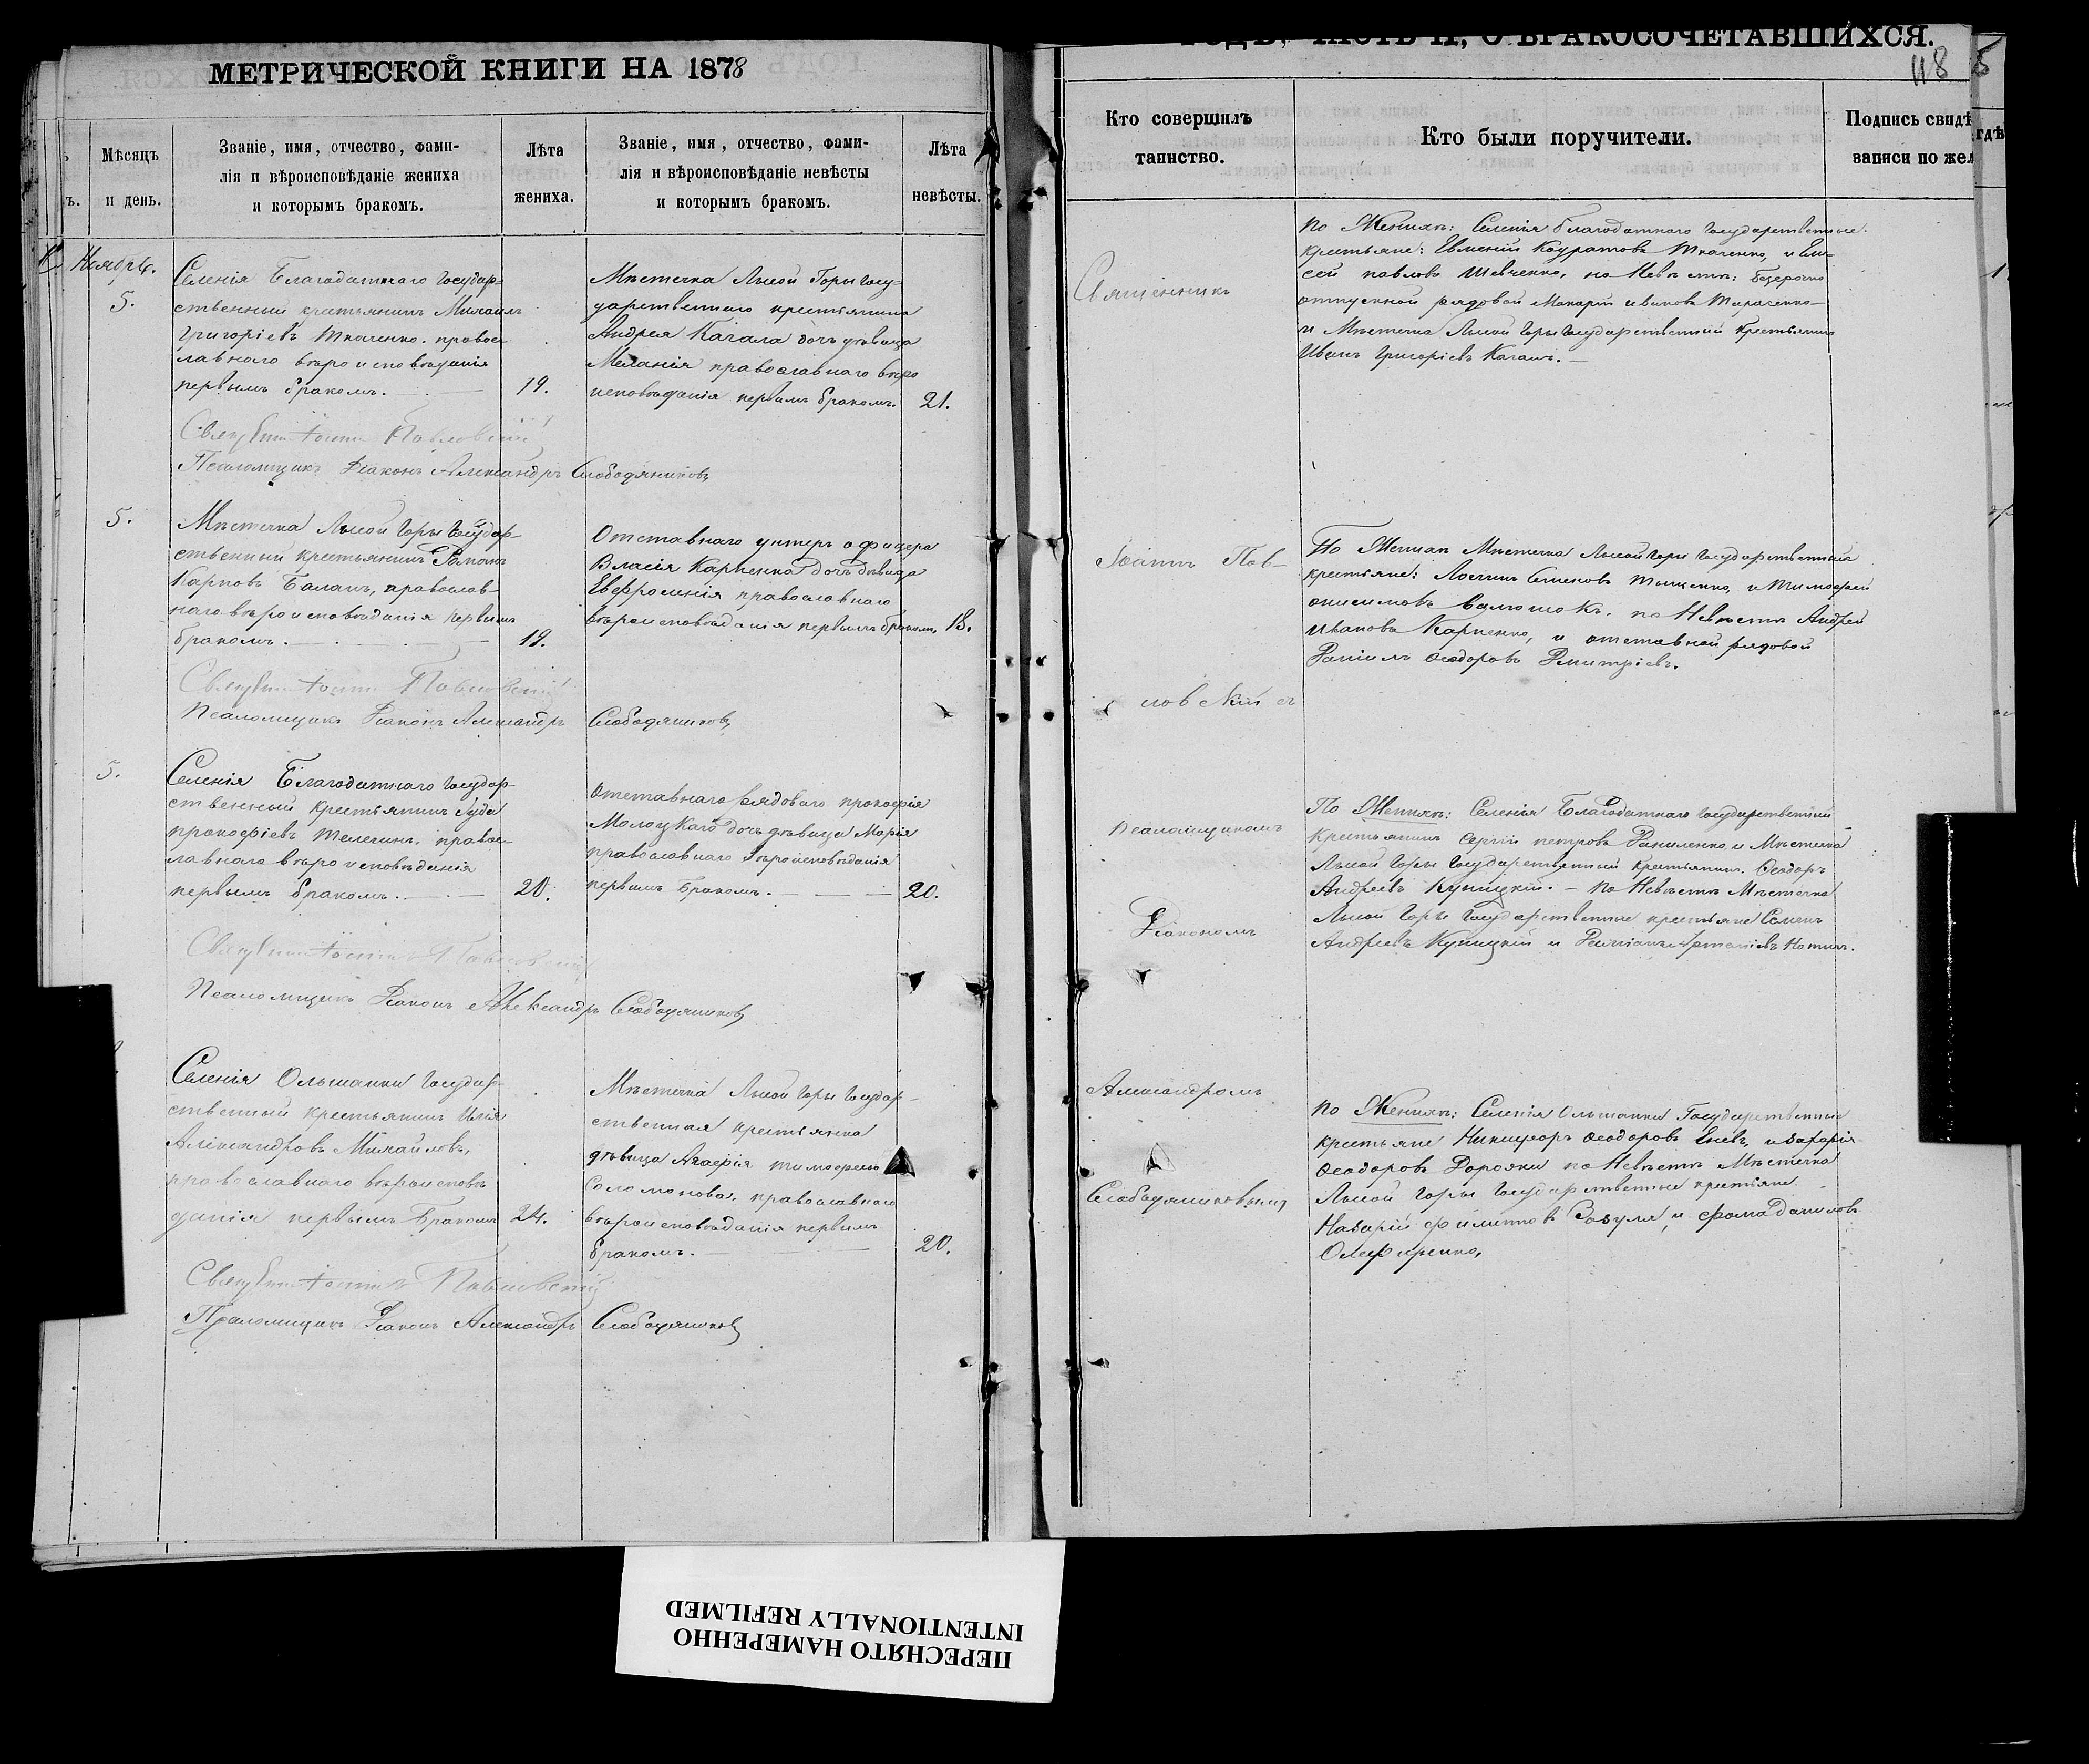 МЕТРИЧЕСКОЙ КНИГИ НА 1878
Мѣсяцъ
и день.
Званіе, имя, отчество, фами-
лія и вѣроисповѣданіе жениха
и которымъ бракомъ.
Лѣта
жениха.
Званіе, имя, отчество, фами-
лія и вѣроисповѣданіе невѣсты
и которымъ бракомъ.
Лѣта
невѣсты.
Ноябрь.
5.
Селенія Благодатнаго Государ-
ственный крестьянинъ Михаилъ
Григоріевъ Ткаченко. правос-
лавнаго вѣроисповѣданія
первымъ бракомъ.
19.
Мѣстечка Лысой Горы Госу-
дарственнаго крестьянина
Андрея Качала дочь дѣвица
Меланія православнаго вѣро
исповѣданія первымъ бракомъ.
21.
Священникъ Іоаннъ Павловскій
Псаломщикъ Діаконъ Александръ Слободяниковъ
5.
Мѣстечка Лысой Горы Государ-
ственный крестьянинъ Романъ
Карповъ Баланъ, православ-
наго вѣроисповѣданія первымъ
бракомъ.
19.
Отставнаго унтеръ офицера
Власія Карпенка дочь дѣвица
Евфросинія православнаго
вѣроисповѣданія первымъ бракомъ
18.
Священникъ Іоаннъ Павловскій
Псаломщикъ Діаконъ Александръ Слободяниковъ
5.
Селенія Благодатнаго Государ-
ственный крестьянинъ Іуда
Прокофіевъ Телегинъ. правос-
лавнаго вѣроисповѣданія
первымъ бракомъ.
20.
Отставнаго рядоваго Прокофія
Молоцкаго дочь дѣвица Марія
православнаго вѣроисповѣданія
первымъ бракомъ.
20.
Священникъ Іоаннъ Павловскій
Псаломщикъ Діаконъ Александръ Слободяниковъ
Селенія Ольшанки Государ-
ственный крестьянинъ Илія
Александровъ Михайловъ,
православнаго вѣроисповѣ
данія первымъ бракомъ
24.
Мѣстечка Лысой Горы Государ-
ственная крестьянка
дѣвица Агафія Тимофеева
Соломонова. православнаго
вѣроисповѣданія первымъ
бракомъ.
20.
Священникъ Іоаннъ Павловскій
Псаломщикъ Діаконъ Александръ Слободяниковъ
ГОДЪ, ЧАСТЬ II, О БРАКОСОЧЕТАВШИХСЯ.
118
Кто совершилъ
таинство.
Кто были поручители.
Подпись свидѣ
записи по жел
гдѣ
Священникъ
Іоаннъ Пав-
ловскій съ
псаломщикомъ
Діакономъ
Александромъ
Слободяниковымъ
По Женихѣ: Селенія Благодатнаго Государственные
крестьяне: Евменій Кодратовъ Ткаченко, и Ели-
сей Павловъ Шевченко, по Невѣстѣ: Безсрочно
отпускной рядовой Макарій Ивановъ Тараченко
и Мѣстечка Лысой Горы Государственный крестьянинъ
Иванъ Григоріевъ Качанъ.
По Женихѣ Мѣстечка Лысой Горы Государственные
крестьяне: Логинъ Семеновъ Тищенко, и Тимофей
Онисимовъ Валюшокъ. по Невѣстѣ Андрей
Ивановъ Карпенко, и отставной рядовой
Даніилъ Феодоровъ Дмитріевъ.
По Женихѣ: Селенія Благодатнаго Государственный
крестьянинъ Сергій Петровъ Даниленко, и Мѣстечка
Лысой Горы Государственный крестьянинъ Феодоръ
Андреевъ Куницкій. – по Невѣстѣ Мѣстечка
Лысой Горы Государственные крестьяне Семенъ
Андреевъ Куницкій и
По Женихѣ: Селенія Ольшанки Государственные
крестьяне Никифоръ Феодоровъ Еневъ, и Захарія
Феодоровъ по Невѣстѣ Мѣстечка
Лысой Горы Государственные крестьяне
Назарій Филиповъ Зозуля, и Фома Даниловъ
Олефиренко,
ПЕРЕСНЯТО НАМЕРЕННО
INTENTIONALLY REFILMED